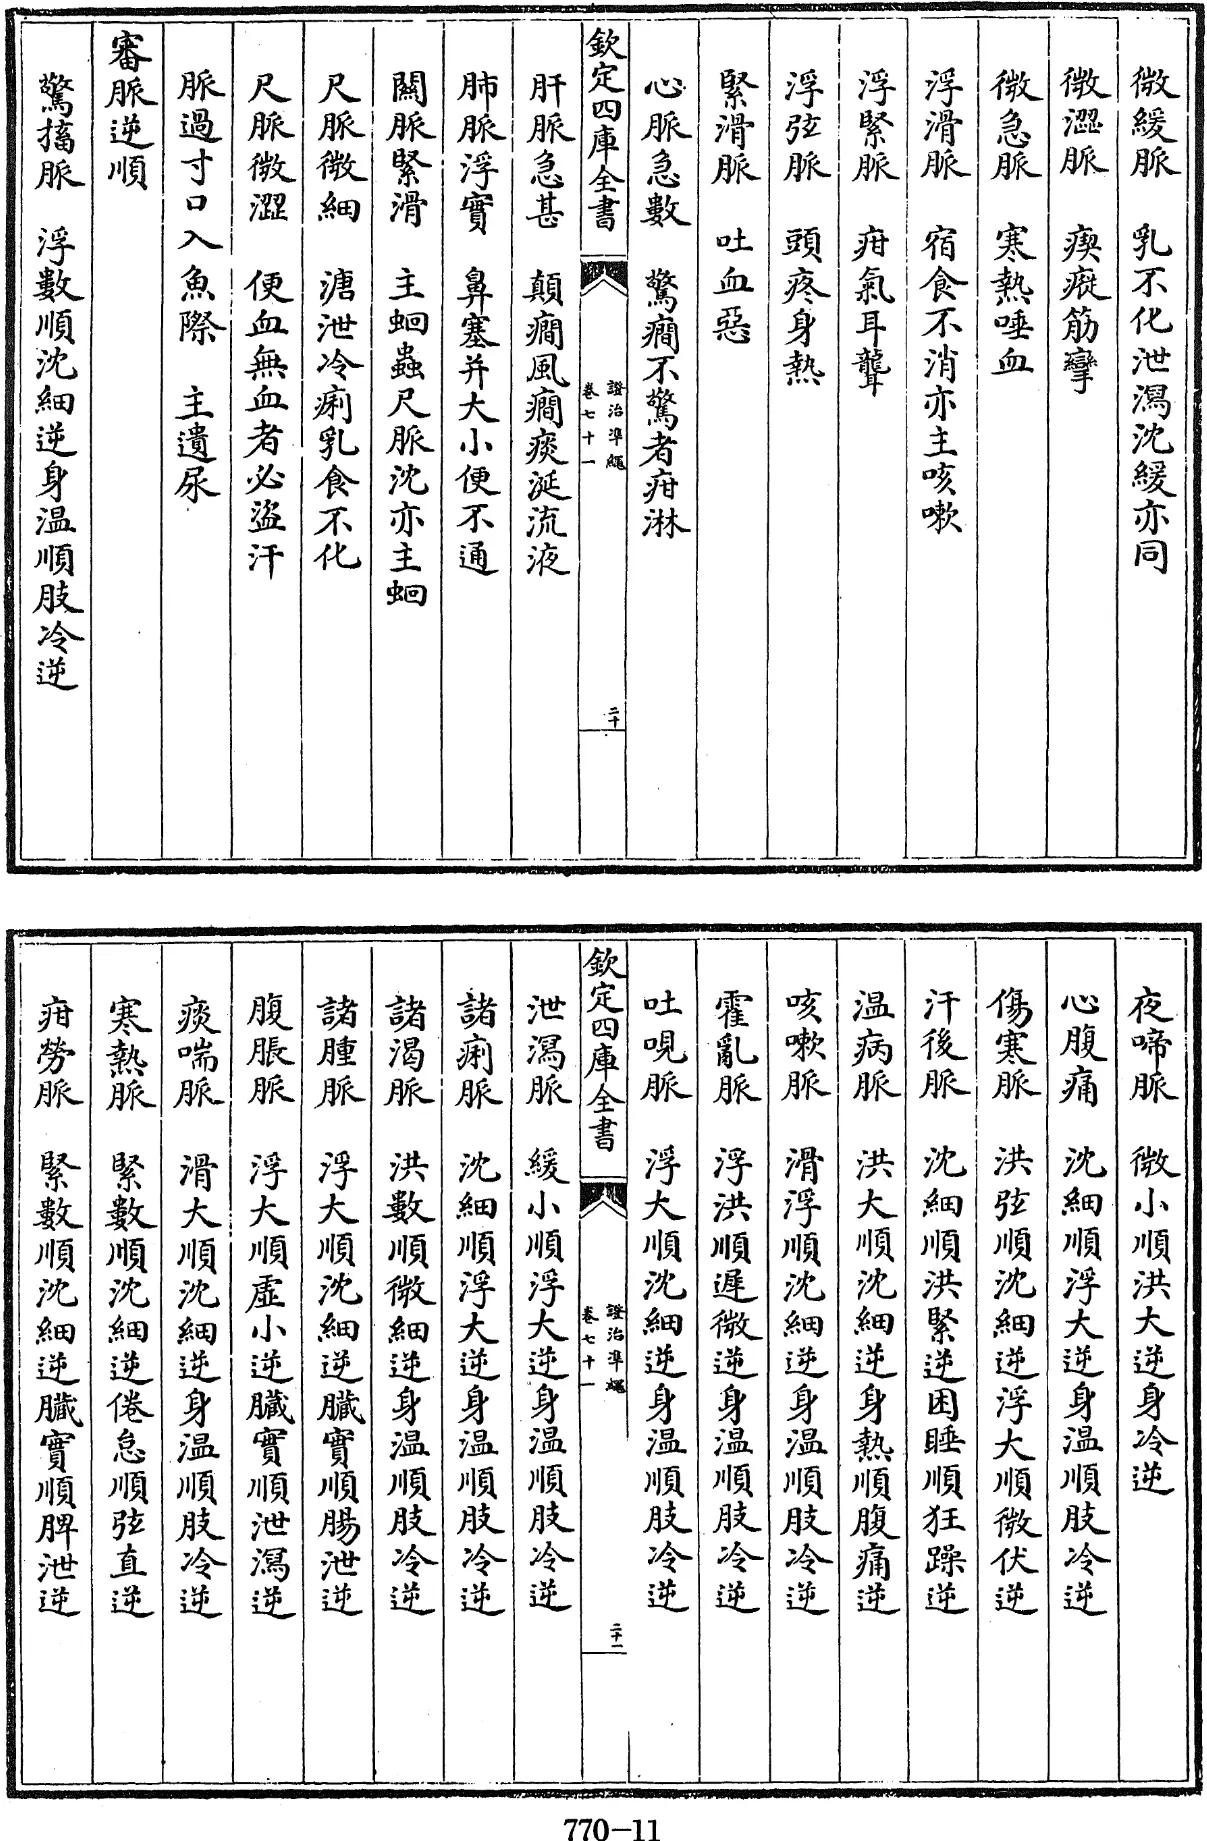 微緩脈　乳不化泄瀉沈緩亦同
微澀脈　瘈瘲筋攣
微急脈　寒熱唾血
浮滑脈　宿食不消亦主咳嗽
浮緊脈　疳氣耳聾
浮弦脈　頭疼身熱
緊滑脈　吐血惡
心脈急數　驚癎不驚者疳淋
欽定四庫全書
證治準繩
卷七十一
二十
肝脈急甚　顛癎風癎痰涎流液
肺脈浮實　鼻塞并大小便不通
關脈緊滑　主蛔蟲尺脈沈亦主蛔
尺脈微細　溏泄冷痢乳食不化
尺脈微澀　便血無血者必盜汗
脈過寸口入魚際　主遺尿
審脈逆順
驚搐脈　浮數順沈細逆身温順肢冷逆
夜啼脈　微小順洪大逆身冷逆
心腹痛　沈細順浮大逆身温順肢冷逆
傷寒脈　洪弦順沈細逆浮大順微伏逆
汗後脈　沈細順洪緊逆困睡順狂躁逆
温病脈　洪大順沈細逆身熱順腹痛逆
咳嗽脈　滑浮順沈細逆身温順肢冷逆
霍亂脈　浮洪順遲微逆身温順肢冷逆
吐哯脈　浮大順沈細逆身温順肢冷逆
欽定四庫全書
證治準繩
卷七十一
二十一
泄瀉脈　緩小順浮大逆身温順肢冷逆
諸痢脈　沈細順浮大逆身温順肢冷逆
諸渴脈　洪數順微細逆身温順肢冷逆
諸腫脈　浮大順沈細逆臟實順腸泄逆
腹脹脈　浮大順虛小逆臟實順泄瀉逆
痰喘脈　滑大順沈細逆身温順肢冷逆
寒熱脈　緊數順沈細逆倦怠順弦直逆
疳勞脈　緊數順沈細逆臟實順脾泄逆
770-11